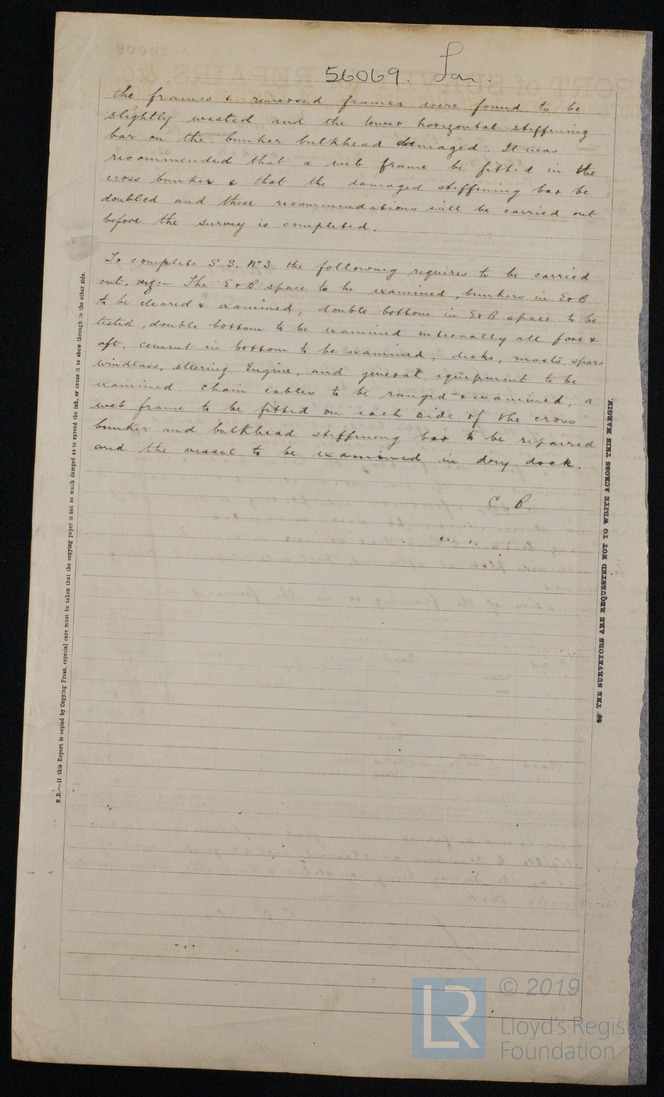 56069. Lon.
the frames & reversed frames were found to be
slightly wasted and the lower horizontal stiffening
bar on the bunker bulkhead damaged. It was
recommended that a web frame be fitted in the
cross bunker & that the damaged stiffening bar be
doubled and these recommendations will be carried out
before the survey is completed.
To complete S.S. Nº3 the following requires to be carried
out. viz:- The E&B space to be examined, bunkers in E&B
to be cleared & examined, double bottom in E&B space to be
tested, double bottom to be examined internally all fore &
aft, cement in bottom to be examined, decks, masts, spars
windlass, steering Engine, and general equipment to be
examined chain cables to be ranged & examined, a
web frame to be fitted on each side of the cross
bunker and bulkhead stiffening bar to be repaired
and the vessel to be examined in dry dock.
C. B.
N.B.—If this Report is copied by Copying Press, especial care must be taken that the copying paper is not so much damped as to spread the ink, or cause it to show through to the other side.
THE SURVEYORS ARE REQUESTED NOT TO WRITE ACROSS THIS MARGIN.
LR
© 2019
Lloyd's Register
Foundation